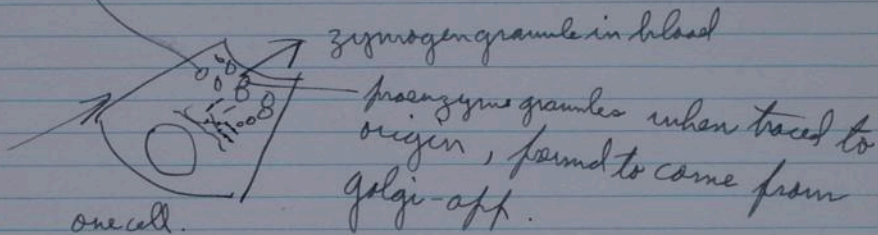 zymogen granule in blood
proenzyme granules when traced to
origin, found to come from
golgi-app.
one cell.